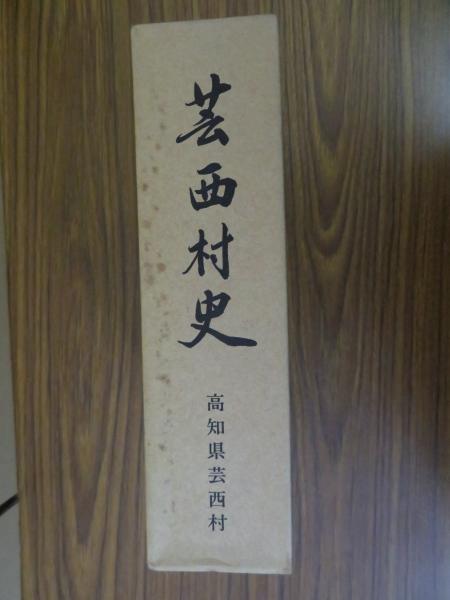 芸西村史
高知県芸西村